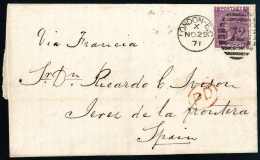 LONDON
X
NO 29
71
72
Via Francia
Sr. Dn. Ricardo C. Ivison
Jerez de la frontera
Spain
PD